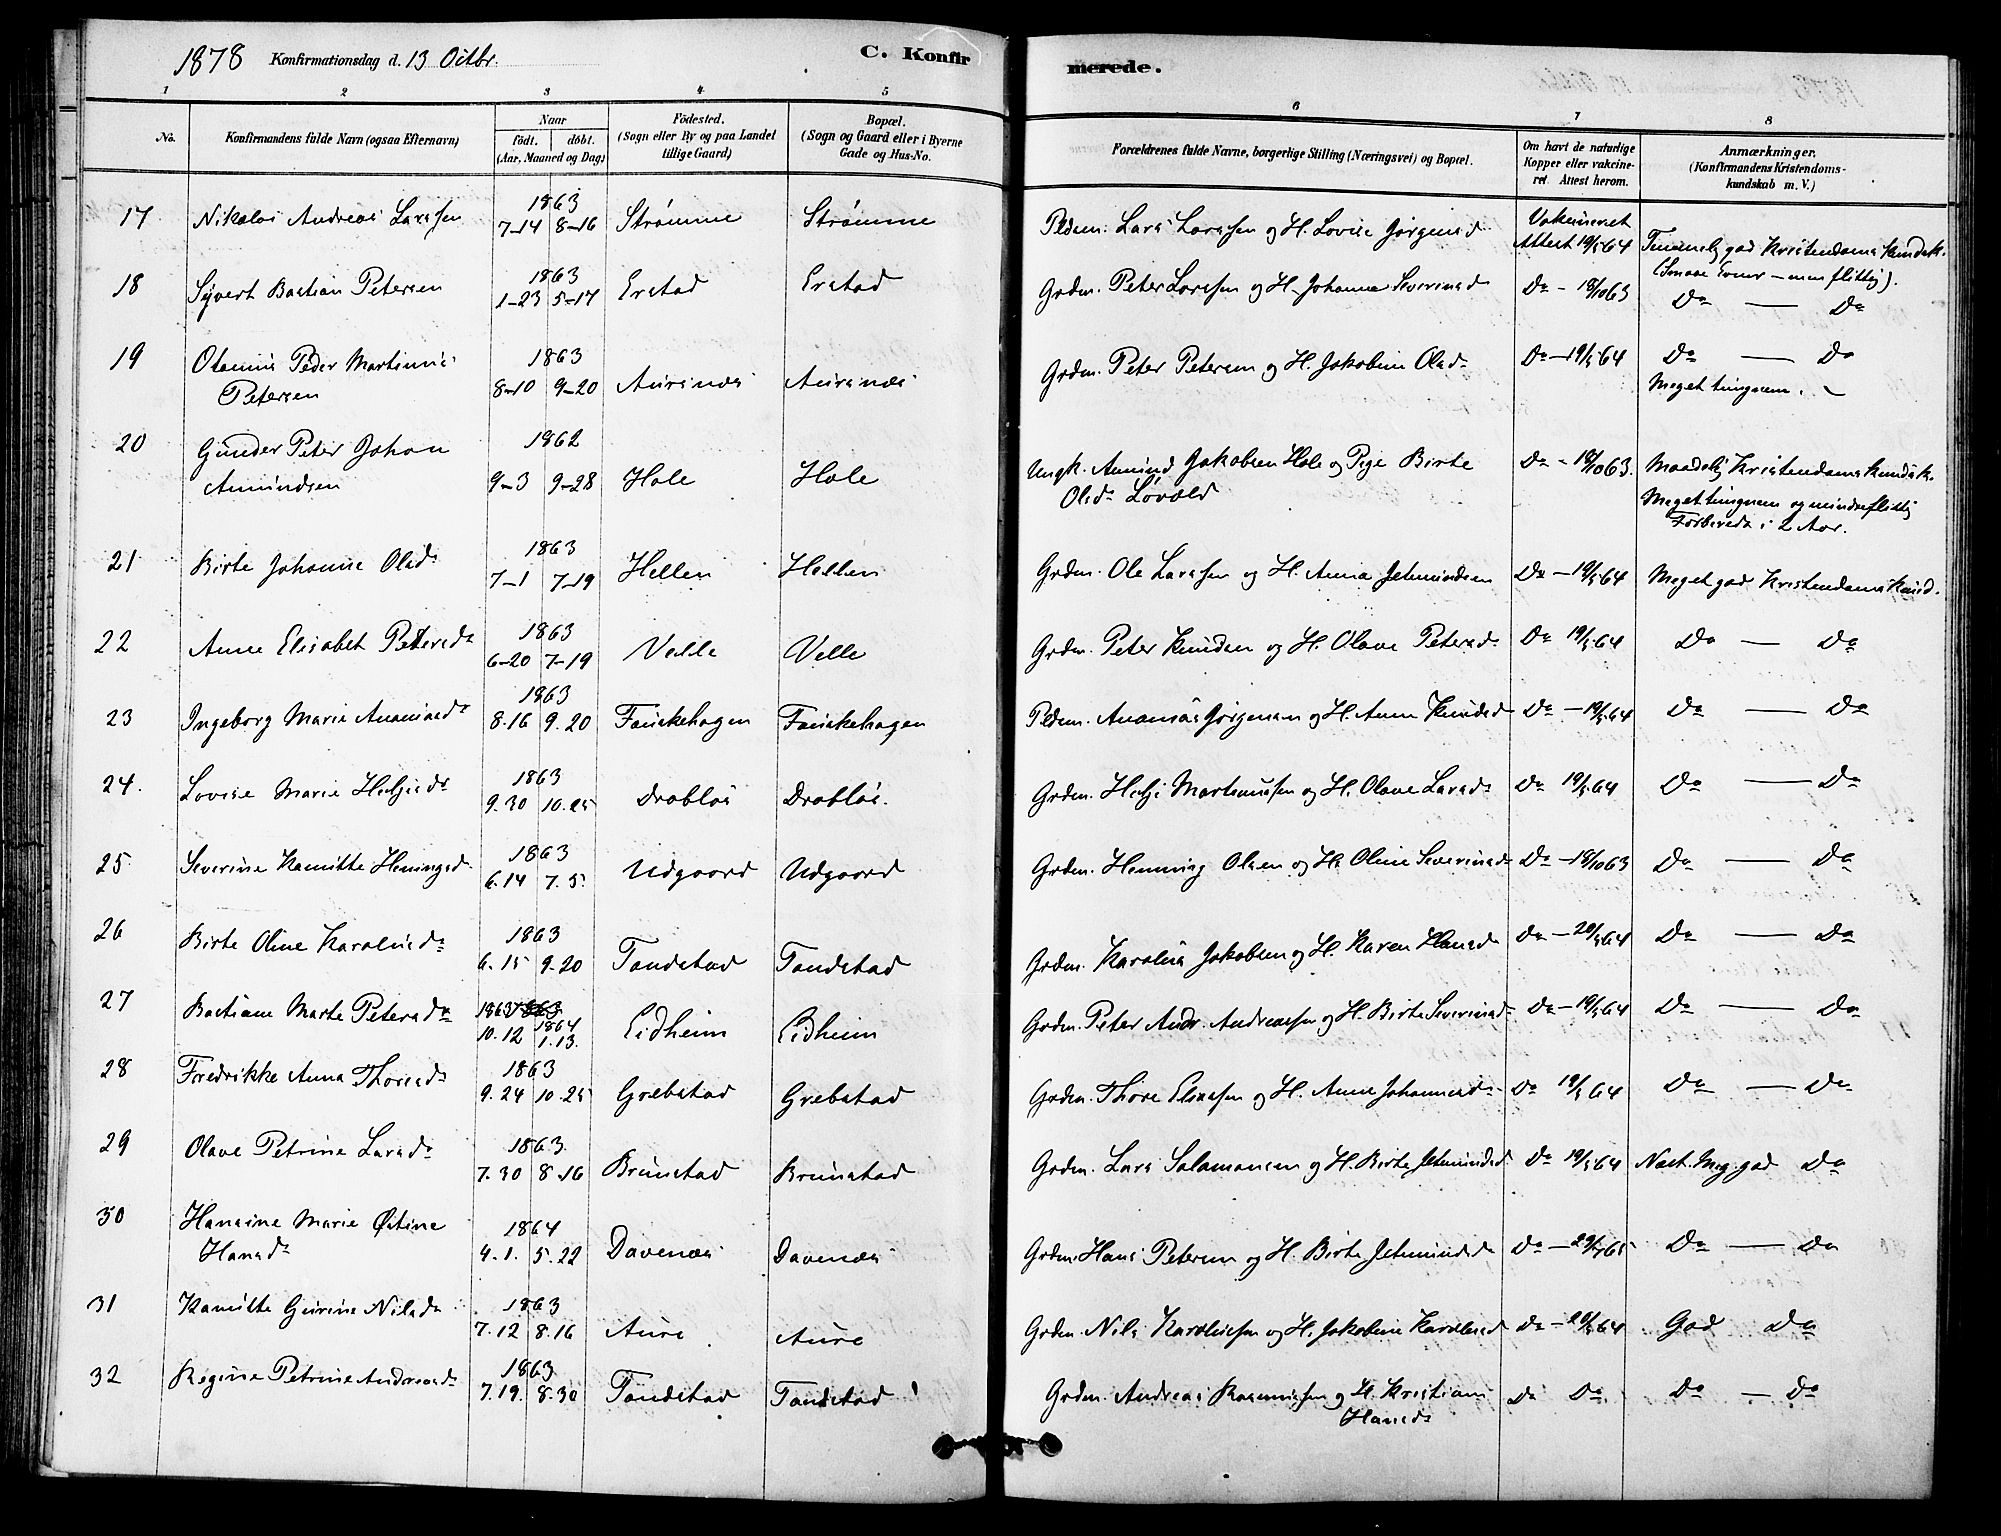 1878 Konfirmationsdag d. 13 Octbr.
C. Konfirmerede.
1 2 3 4 5 6 7 8
No.
Konfirmandens fulde Navn (ogsaa Efternavn)
Naar
födt. döbt.
(Aar, Maaned og Dag)
Fødested.
(Sogn eller By og paa Landet
tillige Gaard)
Bopæl.
(Sogn og Gaard eller i Byerne
Gade og Hus-No.
Forældrenes fulde Navne, borgerlige Stilling (Næringsvei) og Bopæl.
Om havt de naturlige
Kopper eller vakcine-
ret. Attest herom.
Anmærkninger.
(Konfirmandens Kristendoms-
kundskab m. V.)
17 Nikolai Andreas Larssen 1863 7-14 8-16 Strømme Strømme Pldsm. Lars Larssen og H. Lovise Jørgensd. Vakcineret Attest 19/5 64 Temmelig god Kristendomskundsk. (Smaae Evner - men flittig).
18 Syvert Bastian Petersen 1863 1-23 5-17 Erstad Erstad Grdm. Peter Larssen og H. Johanne Severinsd. Do - 18/10 63 Do — Do
19 Olanius Peder Martinus Petersen 1863 8-10 9-20 Aursnæs Aursnæs Grdm. Peter Petersen og H. Jakobine Olsd. Do - 19/5 64 Do — Do Meget tungnem.
20 Gunder Peter Johan Amundsen 1862 9-3 9-28 Hole Hole Ungk. Amund Jakobsen Hole og Pige Birte Olsd. Løvold Do - 18/10 63. Maadelig Kristendomskundsk. Meget tungnem og mindre flittig Forberedt i 2 Aar.
21 Birte Johanne Olsd. 1863 7-1 7-19 Hellen Hellen Grdm. Ole Larssen og H. Anna Jetmundsen Do - 19/5 64 Meget god Kristendomskund.
22 Anne Elisabet Petersd. 1863 6-20 7-19 Velle Velle Grdm. Peter Knudsen og H. Olave Petersd. Do 19/5 64 Do — Do
23 Ingeborg Marie Ananiasd. 1863 8.16 9.20 Fauskehagen Fauskehagen Pldsm. Ananias Jørgensen og H. Anne Knudsd. Do - 19/5 64 Do — Do
24. Lovise Marie Heljesd. 1863 9.30 10.25 Drabløs Drabløs. Grdm. Helje Martinussen og H. Olave Larsd. Do 19/5 64 Do — Do
25 Severine Kamitte Heningsd. 1863 6.14 7.5. Udgaard Udgaard Grdm. Henning Olsen og H. Oline Severinsd. Do - 18/10 63 Do — Do
26 Birte Oline Karolusd. 1863 6.15 9.20 Tandstad Tandstad Grdm. Karolus Jakobsen og H. Karen Hansd. Do - 20/5 64 Do — Do
27 Bastiane Marte Petersd. 1863 10.12 1864 1.13. Eidheim Eidheim Grdm. Peter Andr. Andreassen og H. Birte Severinsd. Do - 19/5 64 Do — Do
28 Fredrikke Anna Thoresd. 1863 9.24 10.25 Grebstad Grebstad Grdm. Thore Eliassen og H. Anne Johannesd. Do 19/5 64 Do — Do
29 Olave Petrine Larsd. 1863. 7.30 8.16 Brunstad Brunstad Grdm. Lars Salamonsen og H. Birte Jetmundsd. Do 19/5 64 Næst. Meg. god Do
30 Hansine Marie Østine Hansd. 1864 4.1. 5.22 Davenæs Davenæs Grdm. Hans Petersen og H. Birte Jetmundsd. Do Do — Do
31 Kamitte Gurine Nilsd. 1863 7.12 8.16 Aure Aure Grdm. Nils Karolussen og H. Jakobine Karolusd. Do - 20/5 64 God Do
32 Regine Petrine Andreasd. 1863 7.19. 8.30 Tandstad Tandstad Grdm. Andreas Rasmussen og H. Kristiane Hansd. Do Do Do — Do